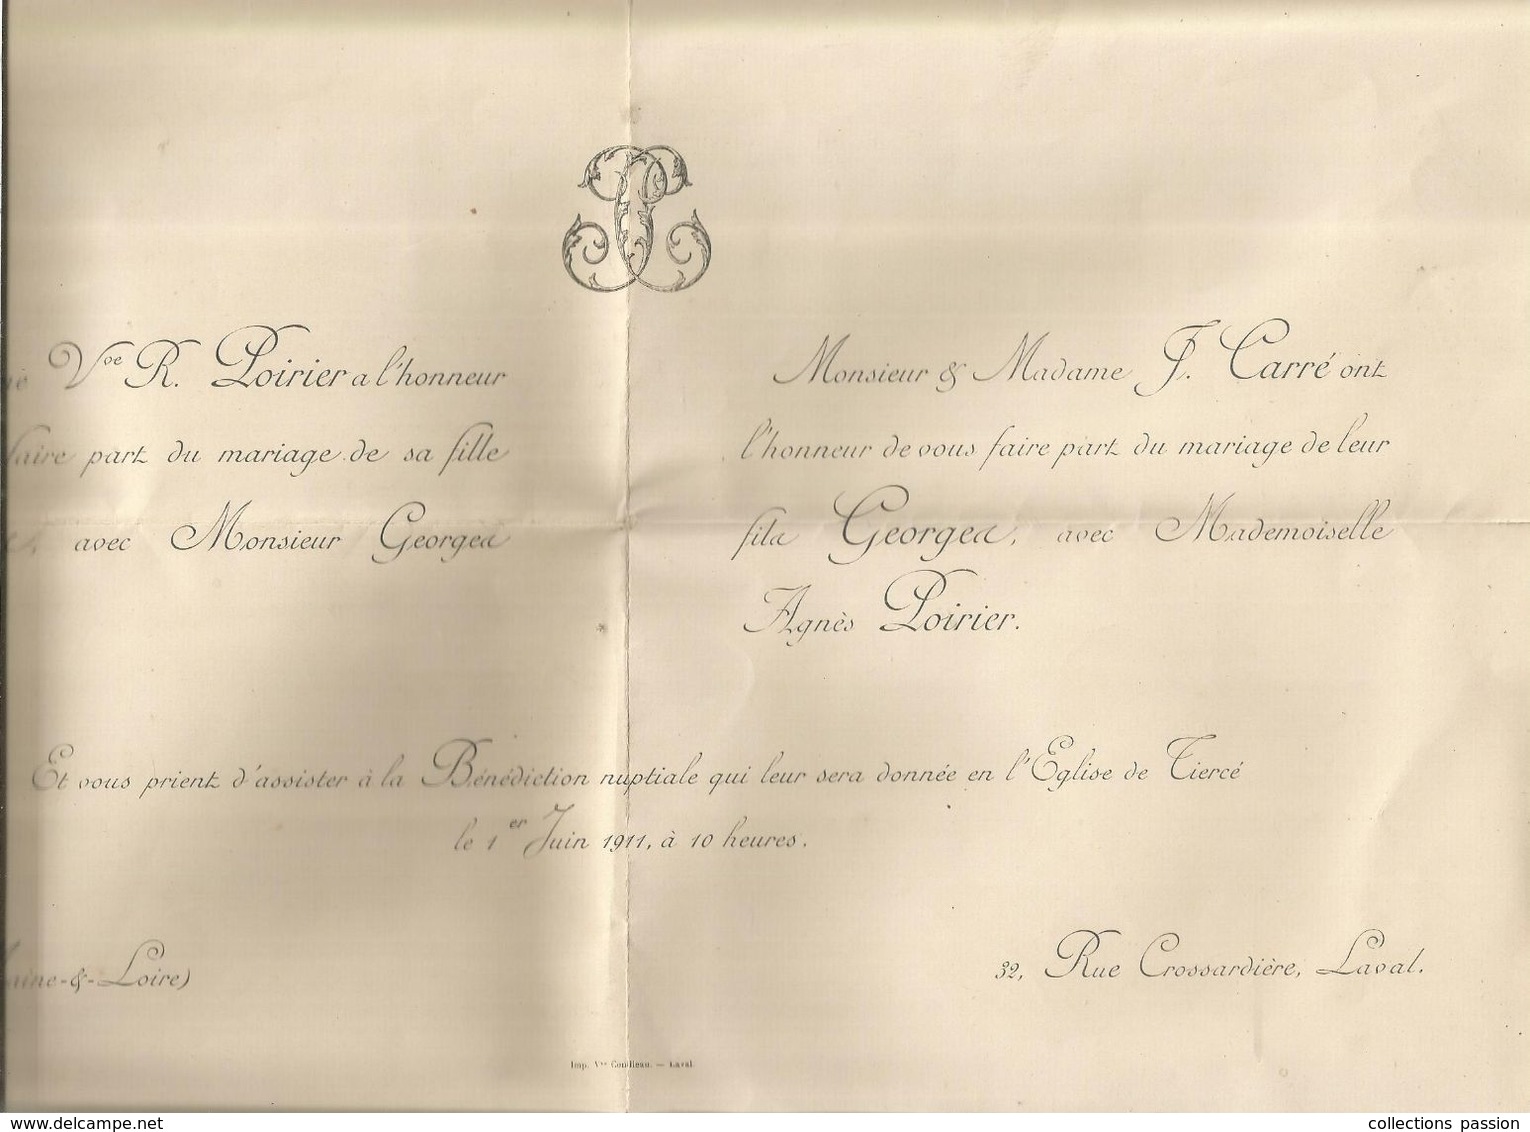 Vve R. Poirier a l'honneur
faire part du mariage de sa fille
avec Monsieur Georges
Monsieur & Madame J. Carré ont
l'honneur de vous faire part du mariage de leur
fils Georges, avec Mademoiselle
Agnès Poirier.
Et vous prient d'assister à la Bénédiction nuptiale qui leur sera donnée en l'Eglise de Tiercé
le 1er Juin 1911, à 10 heures.
aine-&-Loire)
32, Rue Crossardière, Laval.
Imp. Vve — Laval
www.delcampe.net
collections passion